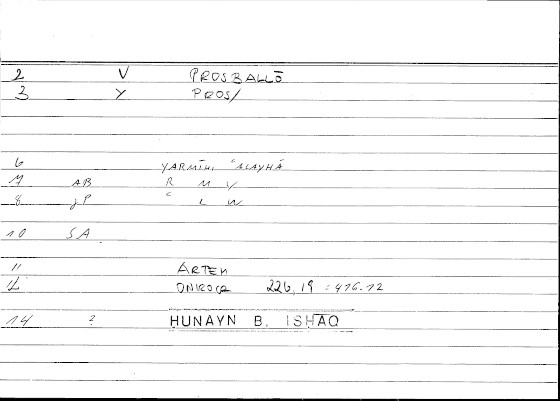 2 V PROSBALLŌ
3 Y PROS/
6 YARMĪHI ʿALAYHĀ
7 AB R M Y
8 JP ʿ L W
10 SA
11 ARTEM
12 ONIROCR 226,19 = 416.12
14 ? HUNAYN B. ISHAQ